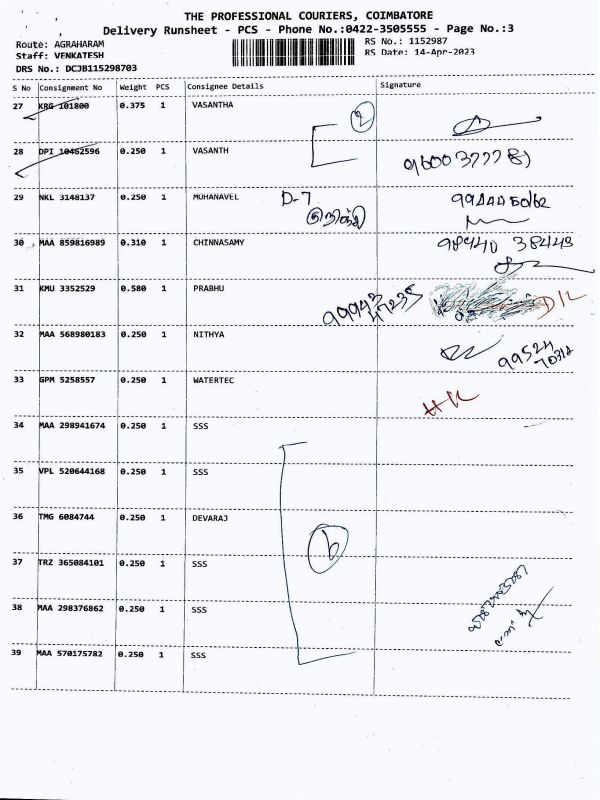 THE PROFESSIONAL COURIERS, COIMBATORE
Delivery Runsheet - PCS - Phone No.:0422-3505555 - Page No.:3
Route: AGRAHARAM
RS No.: 1152987
Staff: VENKATESH
RS Date: 14-Apr-2023
DRS No.: DCJB115298703
S No Consignment No Weight PCS Consignee Details Signature
27 KRG 101800 0.375 1 VASANTHA
2
28 DPI 10462596 0.250 1 VASANTH
29 NKL 3148137 0.250 1 MOHANAVEL D-7
30 MAA 859816989 0.310 1 CHINNASAMY 98440 38443
31 KMU 3352529 0.580 1 PRABHU 99943 47235 D/L
32 MAA 568980183 0.250 1 NITHYA 99524 70312
33 GPM 5258557 0.250 1 WATERTEC
34 MAA 298941674 0.250 1 SSS
35 VPL 520644168 0.250 1 SSS
36 TMG 6084744 0.250 1 DEVARAJ
6
37 TRZ 365084101 0.250 1 SSS
38 MAA 298376862 0.250 1 SSS
39 MAA 570175782 0.250 1 SSS